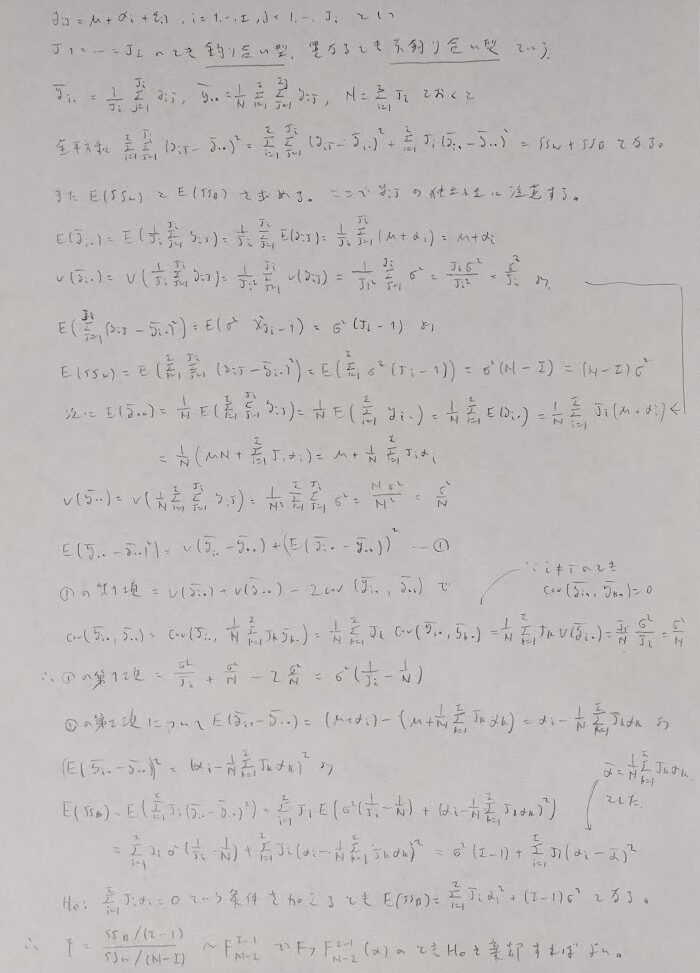 yij = μ + αi + εij , i = 1, … I, j = 1, … Ji とし
J1 = … = JI のとき 釣り合い型, 異なるとき 不釣り合い型 という.
ȳi. = 1/Ji Σ_{j=1}^{Ji} yij, ȳ.. = 1/N Σ_{i=1}^{I} Σ_{j=1}^{Ji} yij, N = Σ_{i=1}^{I} Ji とおくと
全平方和 Σ_{i=1}^{I} Σ_{j=1}^{Ji} (yij - ȳ..)² = Σ_{i=1}^{I} Σ_{j=1}^{Ji} (yij - ȳi.)² + Σ_{i=1}^{I} Ji (ȳi. - ȳ..)² = SSW + SSB となる。
また E(SSW) と E(SSB) を求める。ここで yij の独立性に注意する。
E(ȳi.) = E(1/Ji Σ_{j=1}^{Ji} yij) = 1/Ji Σ_{j=1}^{Ji} E(yij) = 1/Ji Σ_{j=1}^{Ji} (μ + αi) = μ + αi
V(ȳi.) = V(1/Ji Σ_{j=1}^{Ji} yij) = 1/Ji² Σ_{j=1}^{Ji} V(yij) = 1/Ji² Σ_{j=1}^{Ji} σ² = Jiσ²/Ji² = σ²/Ji より
E(Σ_{j=1}^{Ji} (yij - ȳi.)²) = E(σ² χ²Ji-1) = σ² (Ji - 1) より
E(SSW) = E(Σ_{i=1}^{I} Σ_{j=1}^{Ji} (yij - ȳi.)²) = E(Σ_{i=1}^{I} σ² (Ji - 1)) = σ² (N - I) = (N - I)σ²
次に E(ȳ..) = 1/N E(Σ_{i=1}^{I} Σ_{j=1}^{Ji} yij) = 1/N E(Σ_{i=1}^{I} yi.) = 1/N Σ_{i=1}^{I} E(yi.) = 1/N Σ_{i=1}^{I} Ji(μ + αi)
= 1/N (μN + Σ_{i=1}^{I} Jiαi) = μ + 1/N Σ_{i=1}^{I} Jiαi
V(ȳ..) = V(1/N Σ_{i=1}^{I} Σ_{j=1}^{Ji} yij) = 1/N² Σ_{i=1}^{I} Σ_{j=1}^{Ji} σ² = Nσ²/N² = σ²/N
E(ȳi. - ȳ..)² = V(ȳi. - ȳ..) + (E(ȳi. - ȳ..))² … ①
①の第1項 = V(ȳi.) + V(ȳ..) - 2cov(ȳi., ȳ..) で
∵ i ≠ k のとき
cov(ȳi., ȳk.) = 0
cov(ȳi., ȳ..) = cov(ȳi., 1/N Σ_{k=1}^{I} Jk ȳk.) = 1/N Σ_{k=1}^{I} Jk cov(ȳi., ȳk.) = 1/N Σ_{k=1}^{I} Jk V(ȳi.) = Ji/N σ²/Ji = σ²/N
∴ ①の第1項 = σ²/Ji + σ²/N - 2 σ²/N = σ² (1/Ji - 1/N)
①の第2項について E(ȳi. - ȳ..) = (μ + αi) - (μ + 1/N Σ_{k=1}^{I} Jkαk) = αi - 1/N Σ_{k=1}^{I} Jkαk より
(E(ȳi. - ȳ..))² = (αi - 1/N Σ_{k=1}^{I} Jkαk)² より
ᾱ = 1/N Σ_{k=1}^{I} Jkαk
とした.
E(SSB) = E(Σ_{i=1}^{I} Ji(ȳi. - ȳ..)²) = Σ_{i=1}^{I} Ji E(σ² (1/Ji - 1/N) + (αi - 1/N Σ_{k=1}^{I} Jkαk)²)
= Σ_{i=1}^{I} Ji σ² (1/Ji - 1/N) + Σ_{i=1}^{I} Ji (αi - 1/N Σ_{k=1}^{I} Jkαk)² = σ² (I-1) + Σ_{i=1}^{I} Ji (αi - ᾱ)²
H0: Σ_{i=1}^{I} Jiαi = 0 という条件を加えるとき E(SSB) = Σ_{i=1}^{I} Jiαi² + (I-1)σ² となる。
∴ F = SSB/(I-1) / SSW/(N-I) ~ F^{I-1}_{N-I} で F > F^{I-1}_{N-I} (α) のとき H0 を棄却すればよい。